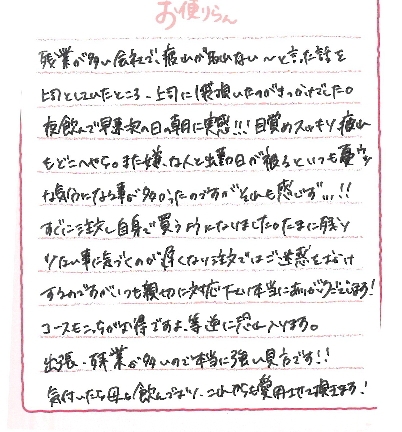 お便りらん
残業が多い会社で、疲れが取れない〜と言った話を
上司としていたところ、上司に1袋頂いたのがきっかけでした。
夜飲んで早速次の日の朝に実感!!!目覚めスッキリ、疲れ
もどこへやら。また嫌な人と出勤日が被るといつも憂うつ
な気分になる事が多かったのですがそれも感じず...!!
すぐに注文し自身で買うようになりました。たまに残り
少ない事に気づくのが遅くなり注文ではご迷惑をおかけ
するのですがいつも親切に対応下さり本当にありがとうございます!
コースもこっちがお得ですよ、等逆に恐れ入ります。
出張・残業が多いので本当に強い見方です!!
気付いたら母も飲んでおり、これからも愛用させて頂きます!